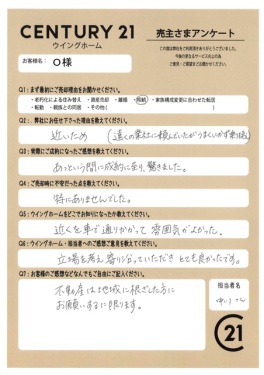 CENTURY 21
ウイングホーム
売主さまアンケート
お客様名： O様
Q1：まず最初にご売却理由をお聞かせください。
・老朽化による住み替え ・資産売却 ・離婚 ・相続 ・家族構成変更に合わせた転居
・転勤 ・親族との同居 ・その他（ ）
Q2：弊社にお任せ下さった理由を教えてください。
近いため (遠くの業社に頼んでいたがうまくいかず
Q3：実際にご成約になったご感想を教えてください。
あっという間に成約に至り、驚きました。
Q4：ご売却時に不安だった点を教えてください。
特にありませんでした。
Q5：ウイングホームをどこでお知りになったか教えてください。
近くを車で通りかかって 雰囲気がよかった。
Q6：ウイングホーム・担当者へのご感想ご意見を教えてください。
立場を考え 寄りそっていただき とても良かったです。
Q7：お客様のご感想などなんでもご自由にご記入ください。
不動産は地域に根ざした方に
お願いするに限ります。
担当者名
21